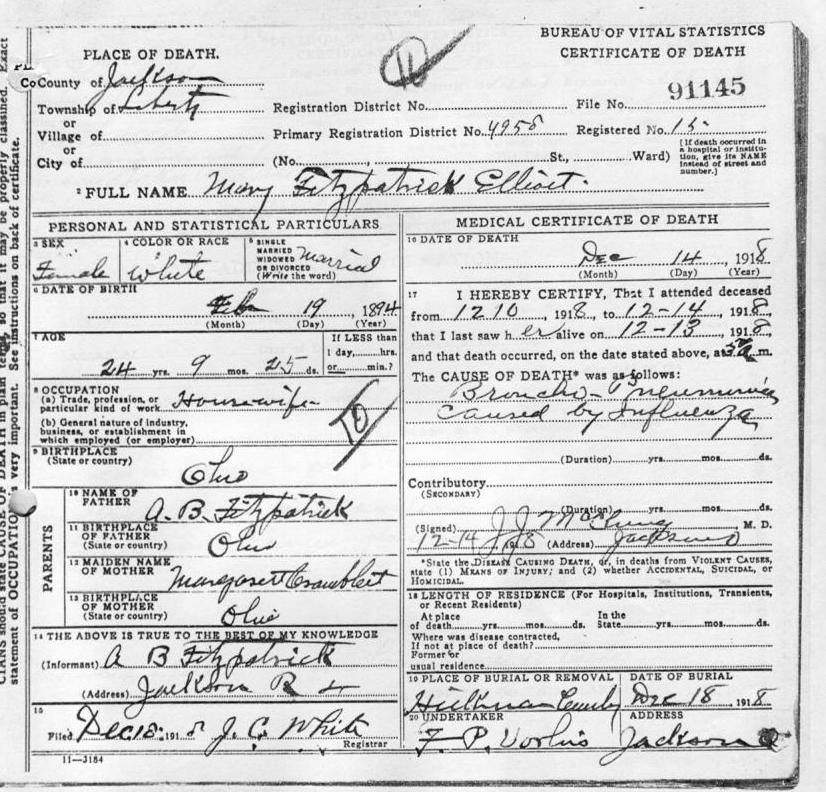 BUREAU OF VITAL STATISTICS
CERTIFICATE OF DEATH
PLACE OF DEATH.
County of Jackson
Township of Liberty
or
Village of
or
City of
11
Registration District No.
File No. 91145
Primary Registration District No. 4958
Registered No. 15.
(No. , St., Ward)
(If death occurred in a hospital or institution, give its NAME instead of street and number.)
2 FULL NAME Mary Fitzpatrick Elliott.
PERSONAL AND STATISTICAL PARTICULARS
3 SEX
Female
4 COLOR OR RACE
White
5 SINGLE
MARRIED
WIDOWED
OR DIVORCED
(Write the word)
Married
6 DATE OF BIRTH
Feb 19 1894
(Month) (Day) (Year)
7 AGE
24 yrs. 9 mos. 25 ds.
If LESS than
1 day, hrs.
or min.?
8 OCCUPATION
(a) Trade, profession, or
particular kind of work Housewife
(b) General nature of industry,
business, or establishment in
which employed (or employer)
10
9 BIRTHPLACE
(State or country)
Ohio
PARENTS
10 NAME OF
FATHER
A. B. Fitzpatrick
11 BIRTHPLACE
OF FATHER
(State or country)
Ohio
12 MAIDEN NAME
OF MOTHER
Margaret
13 BIRTHPLACE
OF MOTHER
(State or country)
Ohio
14 THE ABOVE IS TRUE TO THE BEST OF MY KNOWLEDGE
(Informant) A B Fitzpatrick
(Address) Jackson R 4
15
Filed Dec 18 1918 J. C. White
Registrar
11—3184
MEDICAL CERTIFICATE OF DEATH
16 DATE OF DEATH
Dec 14 1918
(Month) (Day) (Year)
17 I HEREBY CERTIFY, That I attended deceased
from 12 10 1918, to 12-14, 1918,
that I last saw her alive on 12-13, 1918
and that death occurred, on the date stated above, at m.
The CAUSE OF DEATH* was as follows:
Broncho-Pneumonia
Caused by Influenza
(Duration) yrs. mos. ds.
Contributory
(SECONDARY)
(Duration) yrs. mos. ds.
(Signed) J. J. McClung M. D.
12-14, 1918 (Address) Jackson O
*State the DISEASE CAUSING DEATH, or, in deaths from VIOLENT CAUSES,
state (1) MEANS OF INJURY; and (2) whether ACCIDENTAL, SUICIDAL, or
HOMICIDAL.
18 LENGTH OF RESIDENCE (For Hospitals, Institutions, Transients,
or Recent Residents)
At place
of death yrs. mos. ds.
In the
State yrs. mos. ds.
Where was disease contracted,
If not at place of death?
Former or
usual residence
19 PLACE OF BURIAL OR REMOVAL
DATE OF BURIAL
Dec 18, 1918
20 UNDERTAKER
F. P. Vorhis
ADDRESS
Jackson O
CIANS should state CAUSE OF DEATH in plain terms, so that it may be properly classified. Exact
statement of OCCUPATION is very important. See instructions on back of certificate.